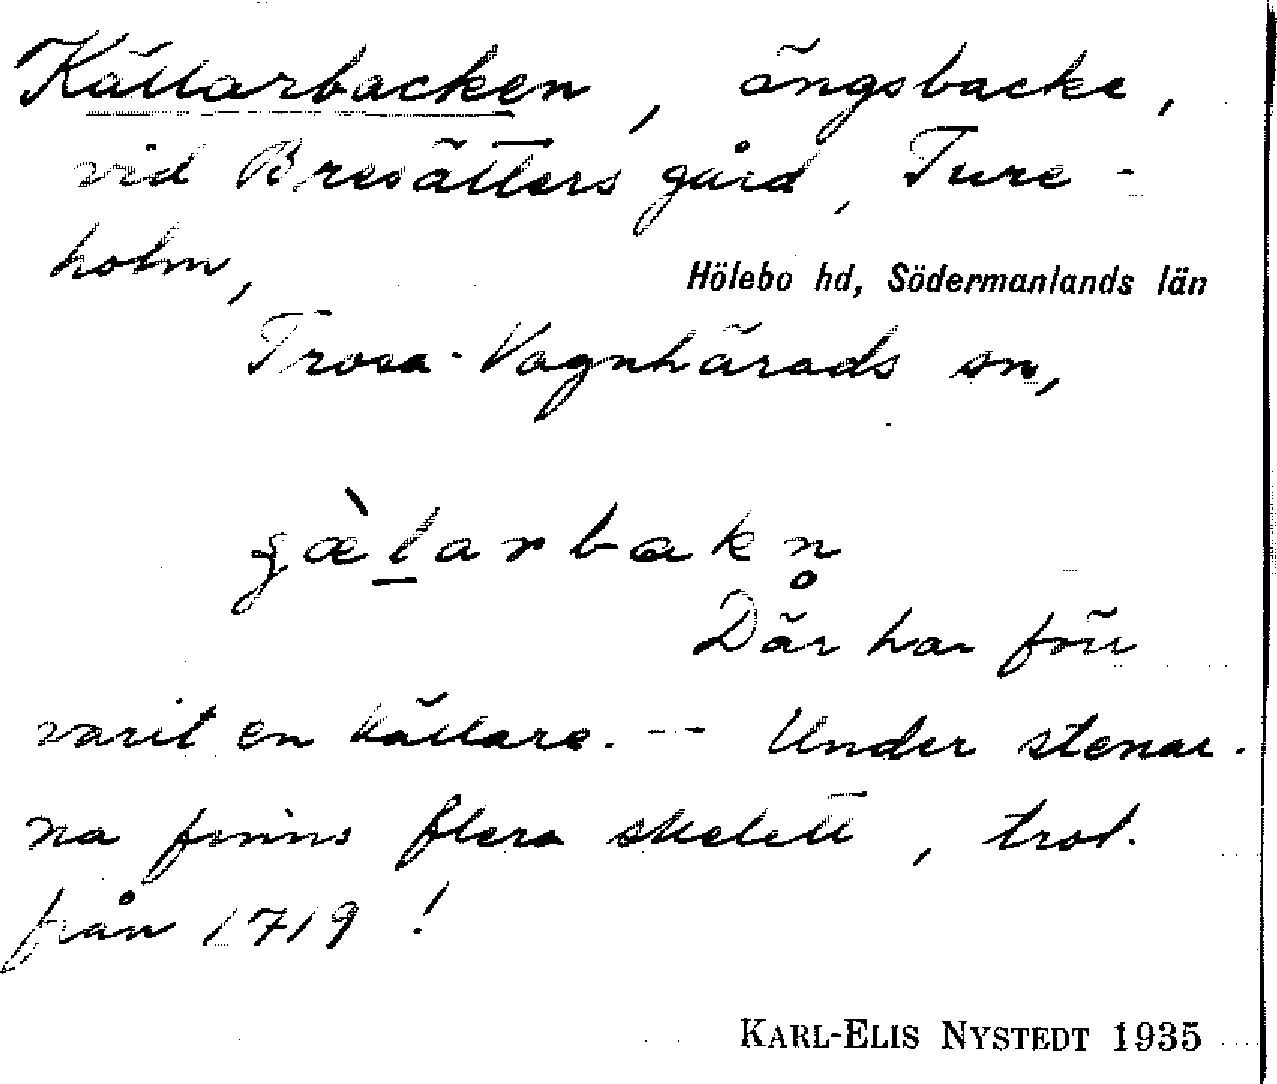 Källarbacken, ängsbacke,
vid Bresätters gård, Ture-
holm,
Hölebo hd, Södermanlands län
Trosa-Vagnhärads sn,
Där har förr
varit en källare. -- Under stenar-
na finns flera skelett, trol.
från 1719!
KARL-ELIS NYSTEDT 1935